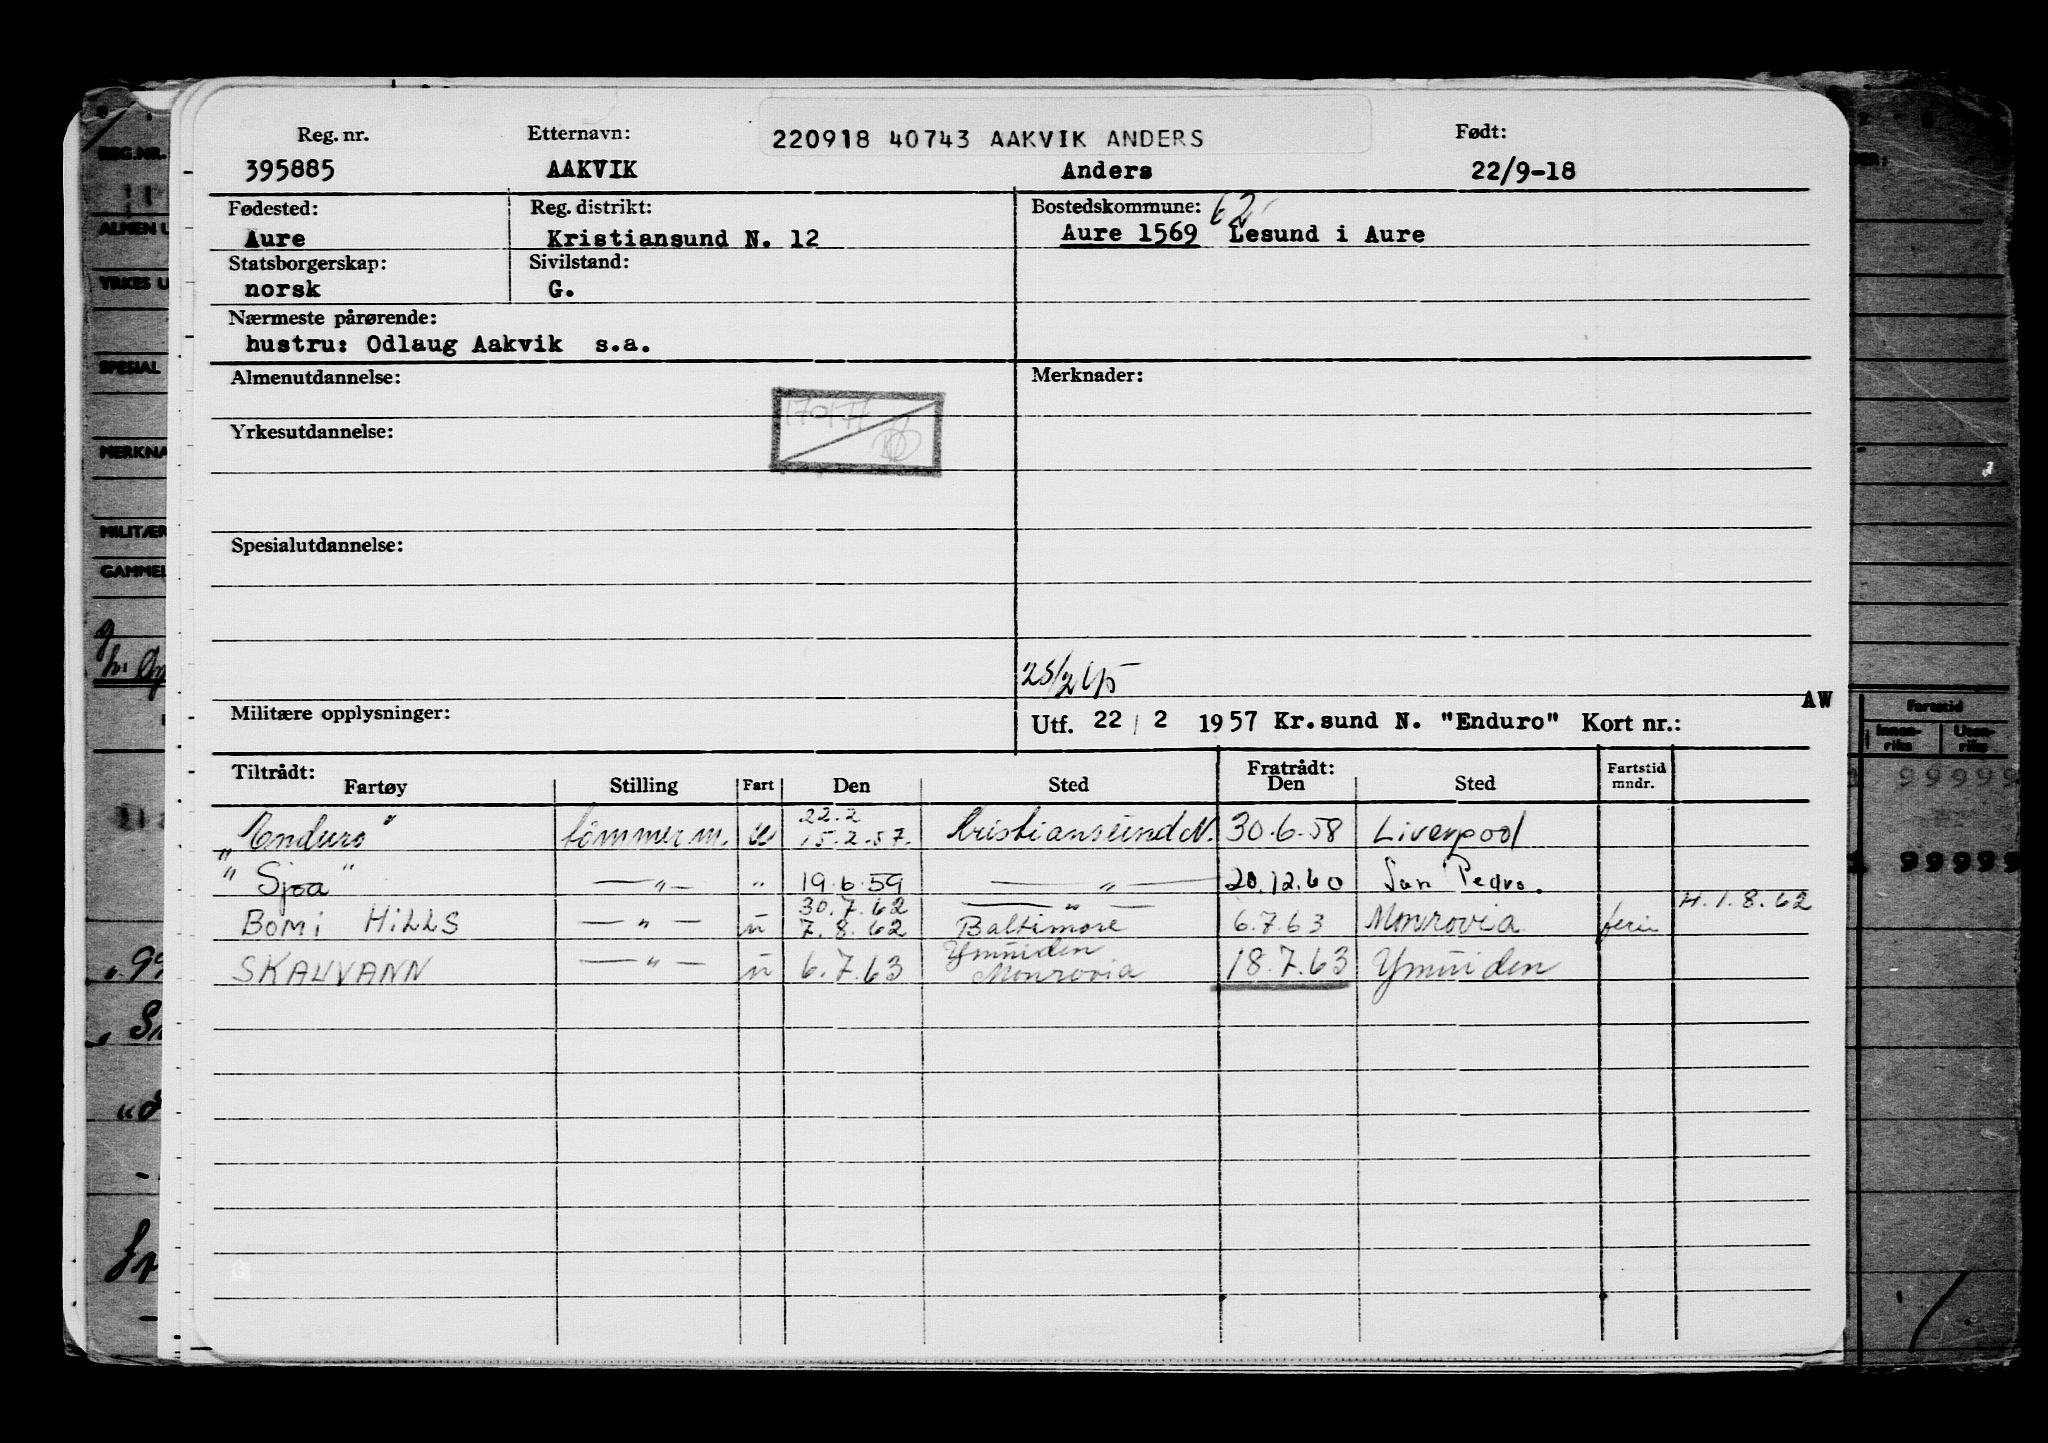 220918 40743 AAKVIK ANDERS
Reg. nr. Etternavn: Født:
395885 AAKVIK Anders 22/9-18
Fødested: Reg. distrikt: Bostedskommune: 62
Aure Kristiansund N. 12 Aure 1569 Lesund i Aure
Statsborgerskap: Sivilstand:
norsk G.
Nærmeste pårørende:
hustru: Odlaug Aakvik s.a.
Almenutdannelse: Merknader:
Yrkesutdannelse:
Spesialutdannelse:
25/2 65
AW
Militære opplysninger: Utf. 22 / 2 1957 Kr.sund N. "Enduro" Kort nr.:
Tiltrådt: Fratrådt:
Fartøy Stilling Fart Den Sted Den Sted Fartstid mndr.
22.2
„Enduro" tømmerm. u 15.2.57. Kristiansund N. 30.6.58 Liverpool
"Sjoa" — „ — „ 19.6.59 — „ — 20.12.60 San Pedro.
30.7.62 — „ — H. 1.8.62
BOMI HILLS — „ — u 7.8.62 Baltimore 6.7.63 Monrovia ferie
Ymuiden
SKAUVANN — „ — u 6.7.63 Monrovia 18.7.63 Ymuiden
REG.NR.
ALMEN U
YRKES U
SPESIAL
MERKNA
MILITÆR
GAMMEL
Fartstid
Innen-riks Uten-riks
99999
99999